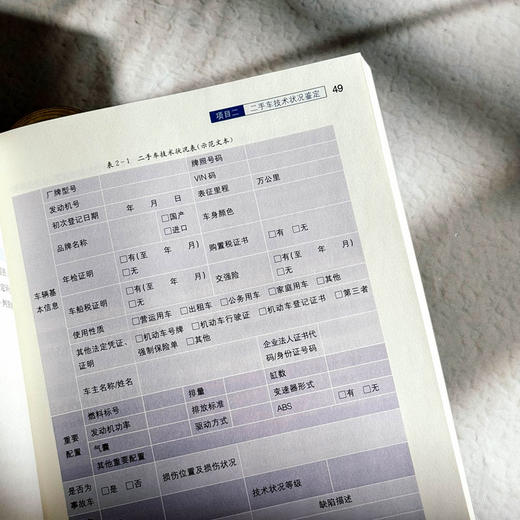 项目二 二手车技术状况鉴定 49
表2-1 二手车技术状况表(示范文本)
厂牌型号 牌照号码
发动机号 VIN码
初次登记日期 年 月 日 表征里程 万公里
品牌名称 □国产 车身颜色
□进口
年检证明 □有(至 年 月) 购置税证书 □有 □无
□无
车辆基
本信息
车船税证明 □有(至 年 月) 交强险 □有(至 年 月)
□无 □无
使用性质 □营运用车 □出租车 □公务用车 □家庭用车 □其他
其他法定凭证、 □机动车号牌 □机动车行驶证 □机动车登记证书 □第三者
证明 强制保险单 □其他
车主名称/姓名 企业法人证书代
码/身份证号码
重要
配置
燃料标号 排量 缸数
发动机功率 排放标准 变速器形式
气囊 驱动方式 ABS □有 □无
其他重要配置
是否为
事故车
□是 □否 损伤位置及损伤状况
技术状况等级
缺陷描述